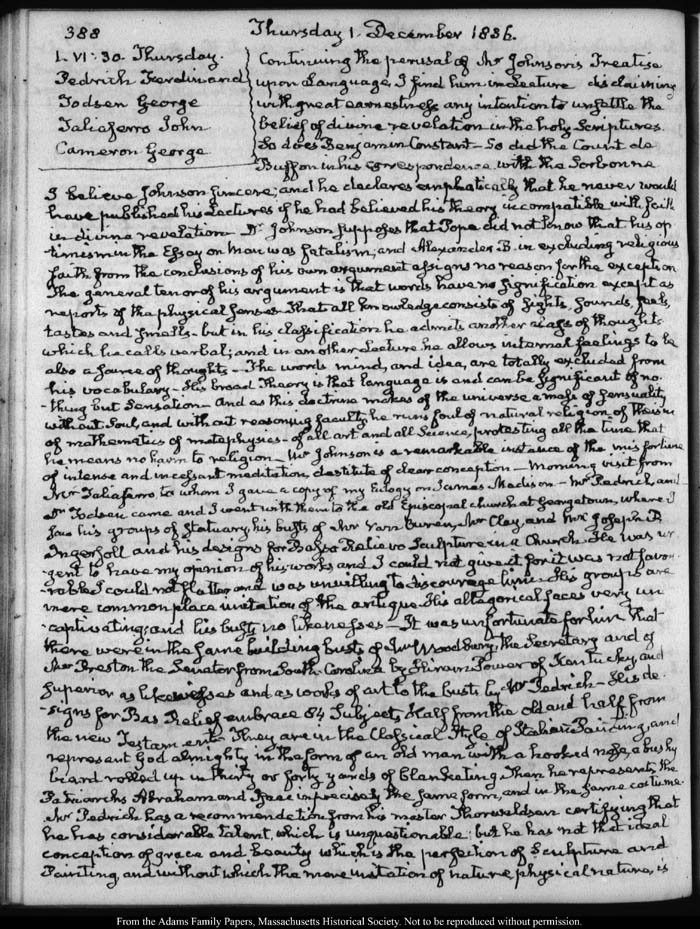 388
Thursday 1. December 1836.
I. VI: 30. Thursday.
Pedrick Ferdinand
Todsen George
Taliaferro John
Cameron George
Continuing the perusal of Mr Johnson's Treatise
upon Language, I find him in Lecture disclaiming
with great earnestness any intention to unsettle the
belief of divine revelation in the holy Scriptures.
So does Benjamin Constant — So did the Count de
Buffon in his correspondence with the Sorbonne
I believe Johnson sincere; and he declares emphatically that he never would
have published his Lectures if he had believed his theory incompatible with faith
in divine revelation — Mr Johnson supposes that Pope did not know that his op
timism in the Essay on Man was fatalism; and Alexander B. in excluding religious
faith from the conclusions of his own argument assigns no reason for the exception
The general tenor of his argument is that words have no signification except as
reports of the physical senses. That all knowledge consists of sights, sounds, feels,
tastes and smells — but in his classification he admits another class of thoughts
which he calls verbal; and in another Lecture he allows internal feelings to be
also a source of thoughts — The words mind, and idea, are totally excluded from
his vocabulary — His broad Theory is that language is and can be significant of no-
-thing but Sensation — And as this doctrine makes of the universe a mass of sensuality
without Soul, and without reasoning faculty, he runs foul of natural religion, of theism
of mathematics of metaphysics — of all art and all Science, protesting all the time that
he means no harm to religion — Mr Johnson is a remarkable instance of the misfortune
of intense and incessant meditation, destitute of clear conception — Morning visit from
Mr Taliaferro, to whom I gave a copy of my Eulogy on James Madison — Mr Pedrick, and
Dr Todsen came and I went with them to the old Episcopal church at Georgetown, where I
saw his groups of Statuary, his busts of Mr Van Buren, Mr Clay, and Mr Joseph R.
Ingersoll and his designs for Basso Relievo Sculpture in a Church. He was ur
gent to have my opinion of his works and I could not give it for it was not favo-
-rable I could not flatter and was unwilling to discourage him. His groups are
mere common place imitation of the antique. His allegorical faces very un
-captivating; and his busts no likenesses — It was unfortunate for him that
there were in the same building busts of Mr Woodbury, the Secretary and of
Mr Preston the Senator from South Carolina by Hiram Power of Kentucky, and
superior as likenesses and as works of art to the busts by Mr Pedrick — His de-
-signs for Bas Relief embrace 84 Subjects, Half from the old and half from
the new Testament — They are in the Classical style of Italian Painting, and
represent God almighty in the form of an old man with a hooked nose, a bushy
beard rolled up in thirty or forty yards of blanketing. Then he represents the
Patriarchs Abraham and Isaac in precisely the same form, and in the same costume.
Mr Pedrick has a recommendation from his master Thorwaldsen certifying that
he has considerable talent, which is unquestionable; but he has not that ideal
conception of grace and beauty which is the perfection of Sculpture and
Painting, and without which the mere imitation of nature, physical nature, is
From the Adams Family Papers, Massachusetts Historical Society. Not to be reproduced without permission.